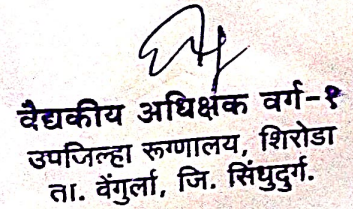 वैद्यकीय अधिक्षक वर्ग-१
उपजिल्हा रूग्णालय, शिरोडा
ता. वेंगुर्ला, जि. सिंधुदुर्ग.